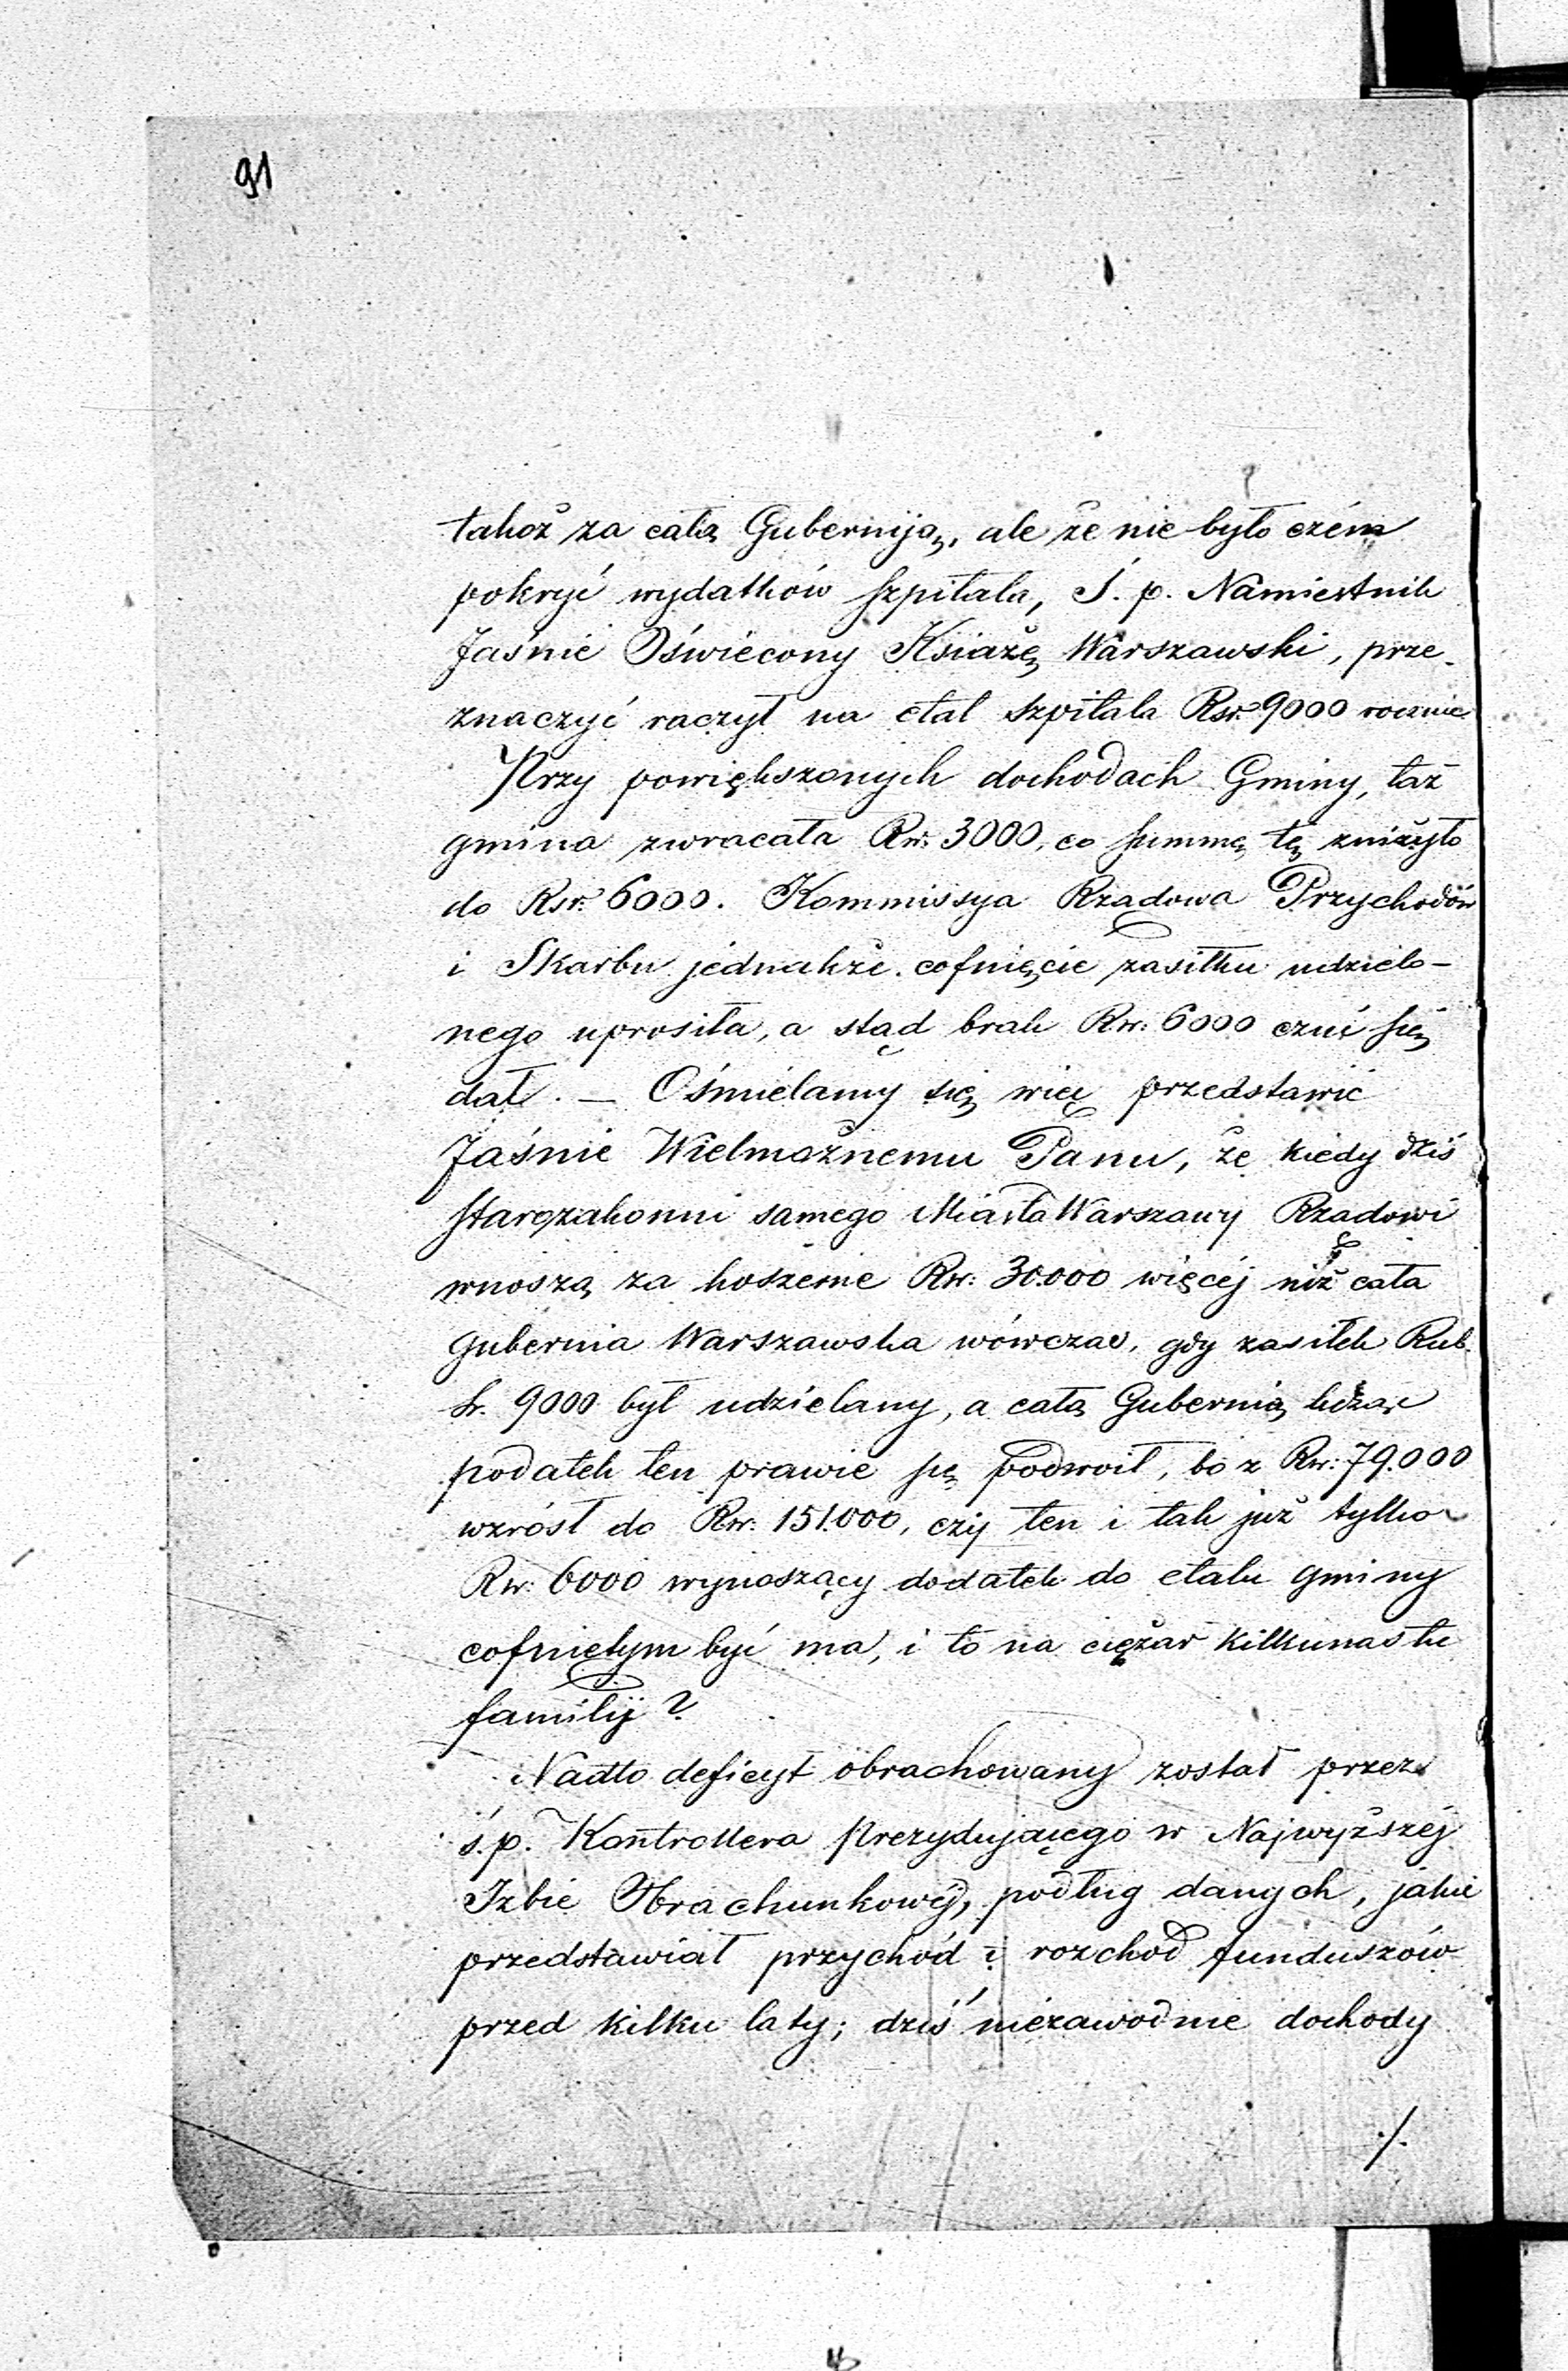 91
takoż za całą Guberniją, ale że nie było czém
pokryć wydatków szpitala, Ś. p. Namiestnik
Jaśnie Oświecony Książę Warszawski, prze-
znaczyć raczył na etat szpitala Rsr. 9000 rocznie
Przy powiększonych dochodach Gminy, taż
gmina zwracała Rsr: 3000, co summę tę zniżyło
do Rsr: 6000. Kommissya Rządowa Przychodów
i Skarbu jednakże cofnięcie zasiłku udzielo-
nego uprosiła, a stąd brak Rsr: 6000 czuć się
dał. — Ośmielamy się więc przedstawić
Jaśnie Wielmożnemu Panu, że kiedy dziś
Starozakonni samego Miasta Warszawy Rządowi
wnoszą za koszerne Rsr: 30.000 więcéj niż cała
gubernia Warszawska wówczas, gdy zasiłek Rub.
sr. 9000 był udzielany, a całą Gubernią licząc
podatek ten prawie się podwoił, bo z Rsr: 79.000
wzrósł do Rsr: 151.000, czyj ten i tak już tylko
Rsr: 6000 wynoszący dodatek do etatu gminy
cofniętym być ma, i to na ciężar kilkunastu
familij?
Nadto deficyt obrachowany został przez
ś. p. Kontrollera Prezydującego w Najwyższéj
Izbie Obrachunkowéj, podług danych, jakie
przedstawiał przychód i rozchód funduszów
przed kilku laty; dziś niezawodnie dochody
./.